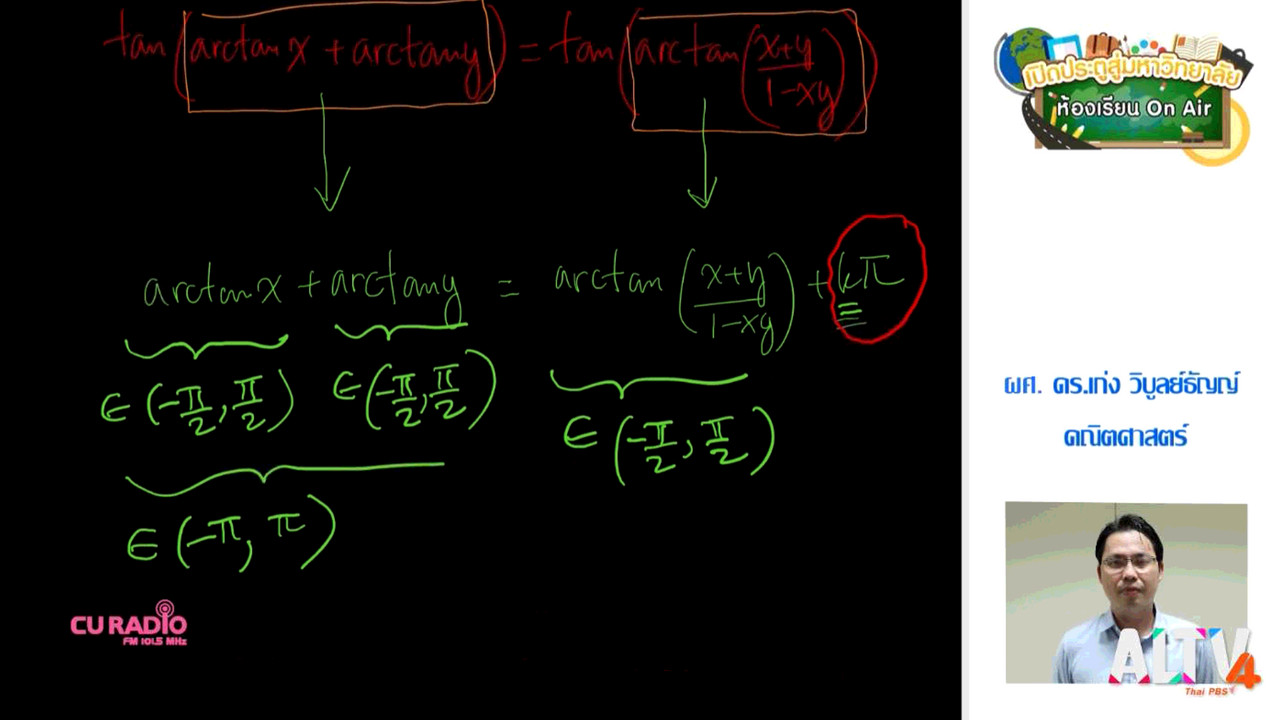 tan(arctan x + arctan y) = tan(arctan(x+y/1-xy))
arctan x + arctan y = arctan(x+y/1-xy) + kπ
∈(-π/2, π/2) ∈(-π/2, π/2) ∈(-π/2, π/2)
∈(-π, π)
CU RADIO
FM 101.5 MHz
เปิดประตูสู่มหาวิทยาลัย
ห้องเรียน On Air
ผศ. ดร.เก่ง วิบูลย์ธัญญ์
คณิตศาสตร์
ALTV4
Thai PBS